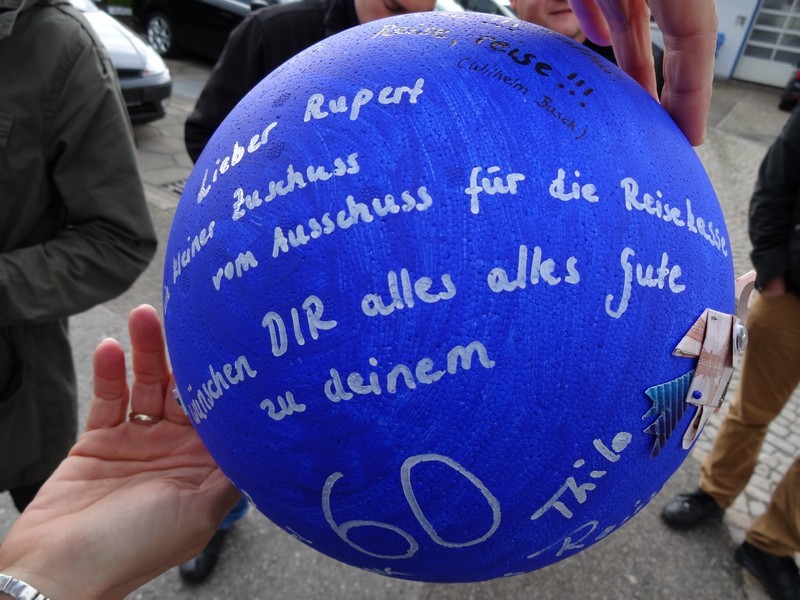 reise, reise!!!
(Wilhelm Busch)
Lieber Rupert
kleiner Zuschuss
vom Ausschuss für die Reisekasse
wünschen DIR alles alles gute
zu deinem
60
Thilo